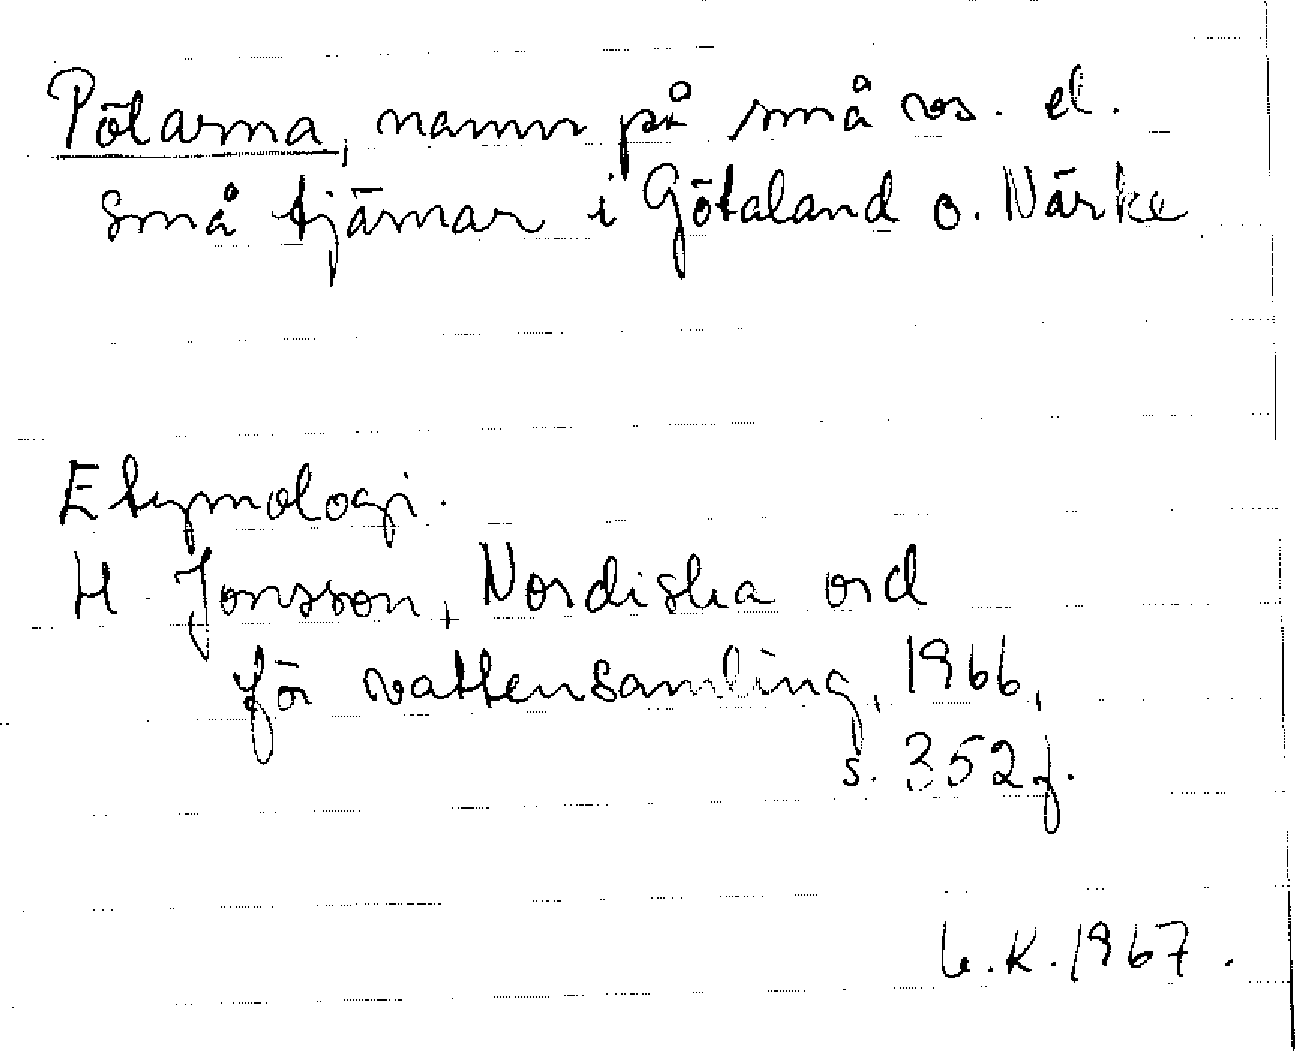 Pölarna, namn på små vs. el.
små tjärnar i Götaland o. Närke
Etymologi.
H Jonsson, Nordiska ord
för vattensamling, 1966,
s. 352 f.
L.K. 1967.